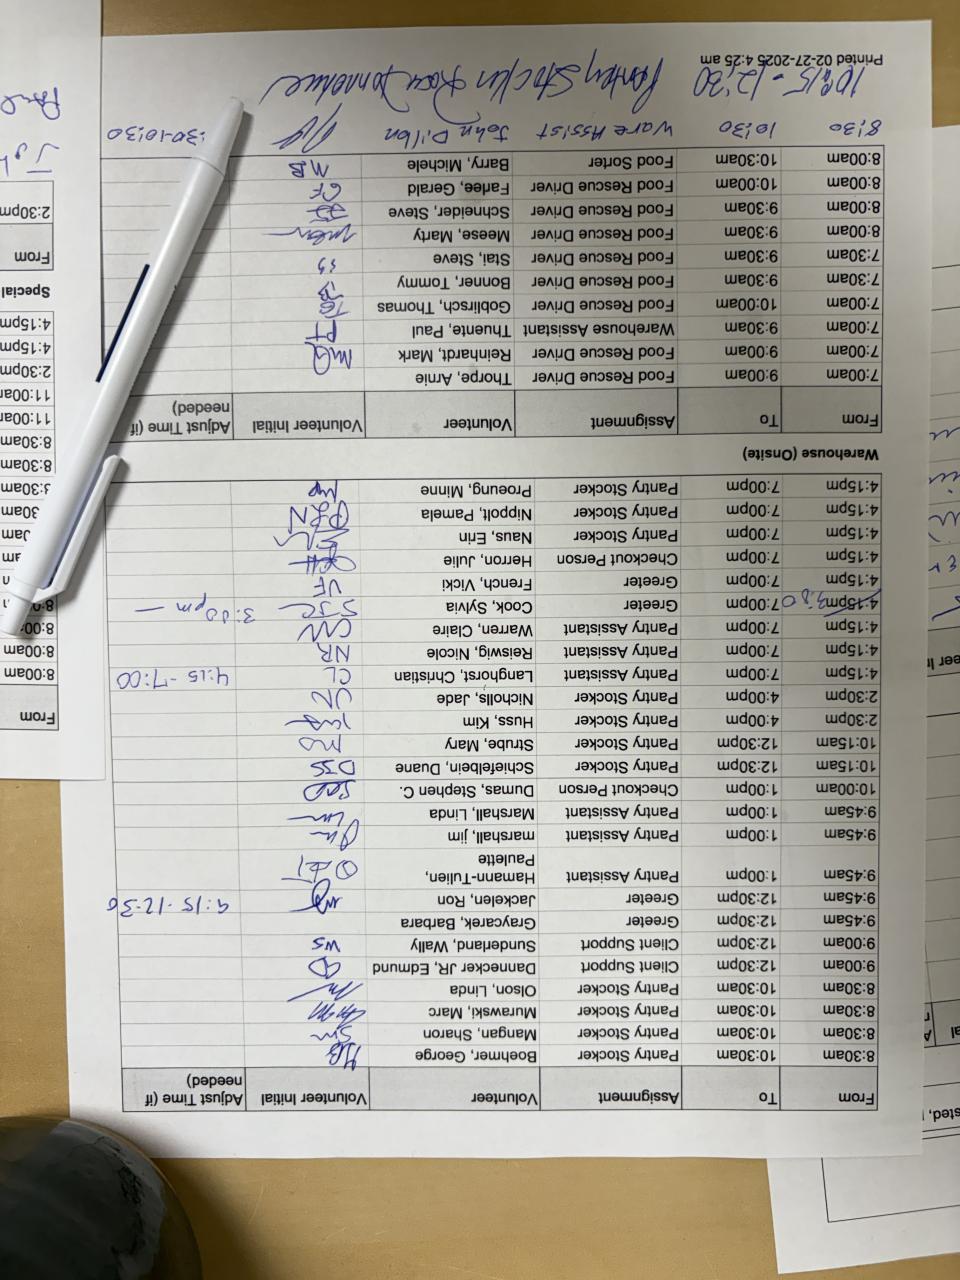 From To Assignment Volunteer Volunteer Initial Adjust Time (if needed)
8:30am 10:30am Pantry Stocker Boehmer, George
8:30am 10:30am Pantry Stocker Mangan, Sharon Sm
8:30am 10:30am Pantry Stocker Murawski, Marc
8:30am 10:30am Pantry Stocker Olson, Linda
9:00am 12:30pm Client Support Dannecker JR, Edmund
9:00am 12:30pm Client Support Sunderland, Wally WS
9:45am 12:30pm Greeter Graycarek, Barbara
9:45am 12:30pm Greeter Jackelen, Ron 9:15-12:30
9:45am 1:00pm Pantry Assistant Hamann-Tulien, Paulette
9:45am 1:00pm Pantry Assistant marshall, jim
9:45am 1:00pm Pantry Assistant Marshall, Linda Lm
10:00am 1:00pm Checkout Person Dumas, Stephen C. SCD
10:15am 12:30pm Pantry Stocker Schiefelbein, Duane DJS
10:15am 12:30pm Pantry Stocker Strube, Mary MS
2:30pm 4:00pm Pantry Stocker Huss, Kim
2:30pm 4:00pm Pantry Stocker Nicholls, Jade JN
4:15pm 7:00pm Pantry Assistant Langhorst, Christian CL 4:15-7:00
4:15pm 7:00pm Pantry Assistant Reiswig, Nicole NR
4:15pm 7:00pm Pantry Assistant Warren, Claire CW
4:15pm 3:00 7:00pm Greeter Cook, Sylvia SJC 3:00pm —
4:15pm 7:00pm Greeter French, Vicki VF
4:15pm 7:00pm Checkout Person Herron, Julie
4:15pm 7:00pm Pantry Stocker Naus, Erin
4:15pm 7:00pm Pantry Stocker Nippolt, Pamela PLN
4:15pm 7:00pm Pantry Stocker Proeung, Minne mp
Warehouse (Onsite)
From To Assignment Volunteer Volunteer Initial Adjust Time (if needed)
7:00am 9:00am Food Rescue Driver Thorpe, Arnie
7:00am 9:00am Food Rescue Driver Reinhardt, Mark
7:00am 9:30am Warehouse Assistant Thuente, Paul PT
7:00am 10:00am Food Rescue Driver Goblirsch, Thomas TG
7:30am 9:30am Food Rescue Driver Bonner, Tommy TB
7:30am 9:30am Food Rescue Driver Stai, Steve SS
8:00am 9:30am Food Rescue Driver Meese, Marty
8:00am 9:30am Food Rescue Driver Schneider, Steve SS
8:00am 10:00am Food Rescue Driver Farlee, Gerald GF
8:00am 10:30am Food Sorter Barry, Michele MB
8:30 10:30 Ware Assist John Dillon :30-10:30
10:15-12:30 Pantry Stocker Ron Donnehue
Printed 02-27-2025 4:25 am
From
8:00am
8:00am
8:00
8:0
30am
3:30am
8:30am
8:30am
11:00am
11:00am
2:30pm
4:15pm
4:15pm
Special
From
2:30pm